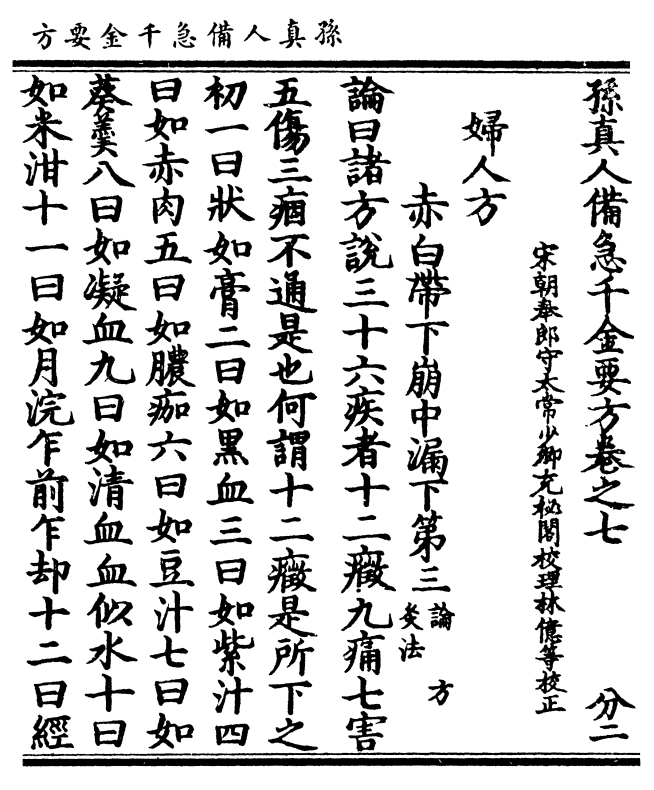 孫真人備急千金要方
孫真人備急千金要方卷之七 分二
宋朝奉郎守太常少卿充秘閣校理林億等校正
婦人方
赤白帶下崩中漏下第三 論 方 灸法
論曰諸方說三十六疾者十二癥九痛七害
五傷三痼不通是也何謂十二癥是所下之
物一曰狀如膏二曰如黑血三曰如紫汁四
曰如赤肉五曰如膿痂六曰如豆汁七曰如
葵羹八曰如凝血九曰如清血血似水十曰
如米泔十一曰如月浣乍前乍却十二曰經